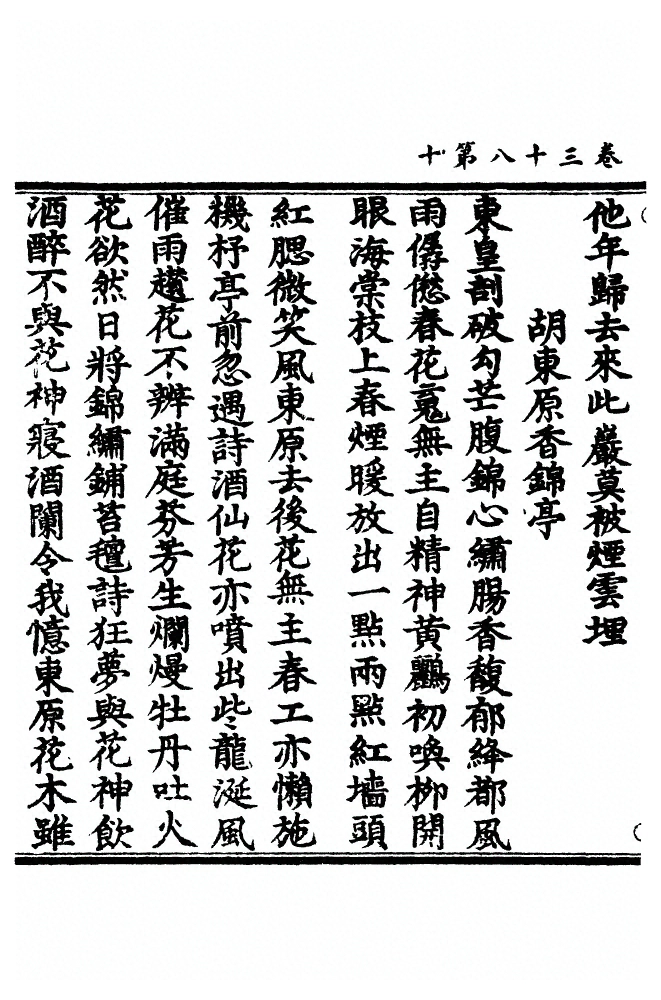 卷三十八第十
他年歸去來此巖莫被煙雲埋
胡東原香錦亭
東皇剖破勾芒腹錦心繡腸香馥郁絳都風
雨僝僽春花寃無主自精神黃鸝初喚柳開
眼海棠枝上春煙暖放出一點兩點紅墻頭
紅腮微笑風東原去後花無主春工亦懶施
機杼亭前忽遇詩酒仙花亦噴出些龍涎風
催雨趲花不辨滿庭芬芳生爛熳牡丹吐火
花欲然日將錦繡鋪苔氊詩狂夢與花神飲
酒醉不與花神寢酒闌令我憶東原花木雖